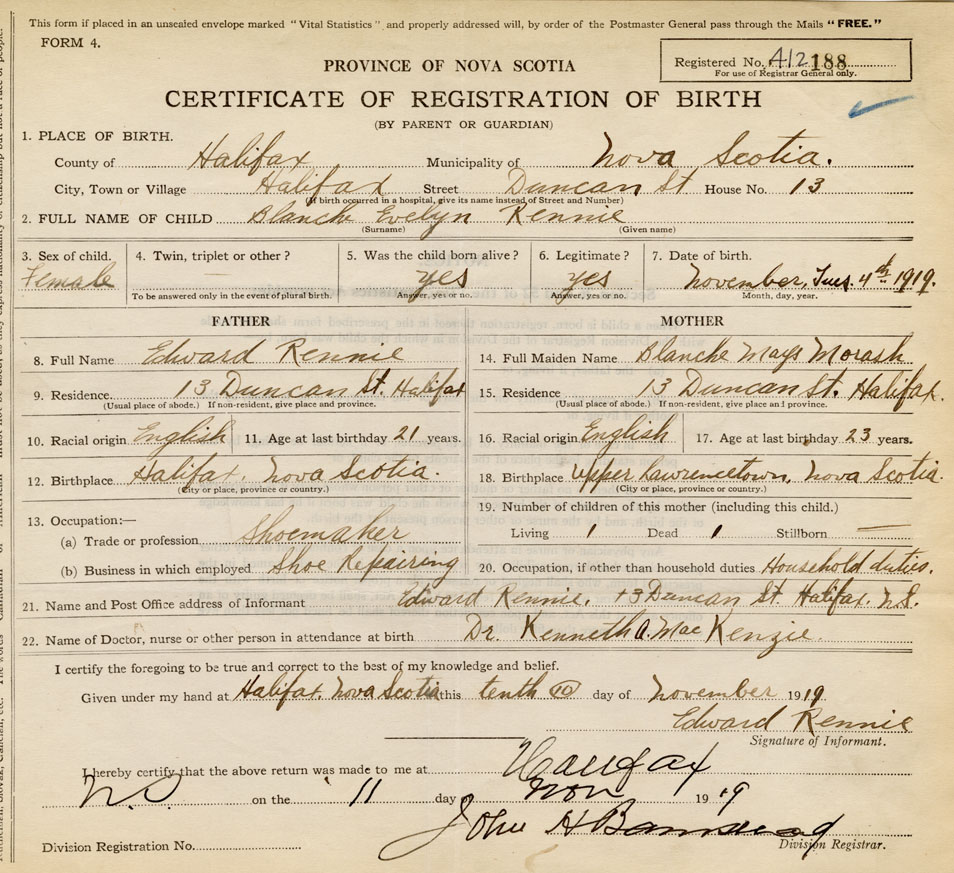 This form if placed in an unsealed envelope marked "Vital Statistics" and properly addressed will, by order of the Postmaster General pass through the Mails "FREE."
FORM 4.
Registered No. A12 188
For use of Registrar General only.
PROVINCE OF NOVA SCOTIA
CERTIFICATE OF REGISTRATION OF BIRTH
(BY PARENT OR GUARDIAN)
1. PLACE OF BIRTH.
County of Halifax, Municipality of Nova Scotia.
City, Town or Village Halifax Street Duncan St House No. 13
(If birth occurred in a hospital, give its name instead of Street and Number)
2. FULL NAME OF CHILD Blanche Evelyn Rennie
(Surname) (Given name)
3. Sex of child. 4. Twin, triplet or other? 5. Was the child born alive? 6. Legitimate? 7. Date of birth.
Female — yes yes November, Tues. 4th 1919.
To be answered only in the event of plural birth. Answer, yes or no. Answer, yes or no. Month, day, year.
FATHER MOTHER
8. Full Name Edward Rennie 14. Full Maiden Name Blanche Mays Morash
9. Residence 13 Duncan St. Halifax 15. Residence 13 Duncan St. Halifax.
(Usual place of abode.) If non-resident, give place and province. (Usual place of abode.) If non-resident, give place and province.
10. Racial origin English 11. Age at last birthday 21 years. 16. Racial origin English 17. Age at last birthday 23 years.
12. Birthplace Halifax, Nova Scotia. 18. Birthplace Upper Lawrencetown, Nova Scotia.
(City or place, province or country.) (City or place, province or country.)
13. Occupation:— 19. Number of children of this mother (including this child.)
(a) Trade or profession Shoemaker Living 1 Dead 1 Stillborn —
(b) Business in which employed Shoe Repairing 20. Occupation, if other than household duties Household duties.
21. Name and Post Office address of Informant Edward Rennie, 13 Duncan St. Halifax. N.S.
22. Name of Doctor, nurse or other person in attendance at birth Dr. Kenneth A. MacKenzie.
I certify the foregoing to be true and correct to the best of my knowledge and belief.
Given under my hand at Halifax Nova Scotia this tenth (10) day of November 1919.
Edward Rennie
Signature of Informant.
I hereby certify that the above return was made to me at Halifax
N.S. on the 11 day of Nov 1919
John H
Division Registration No. Division Registrar.